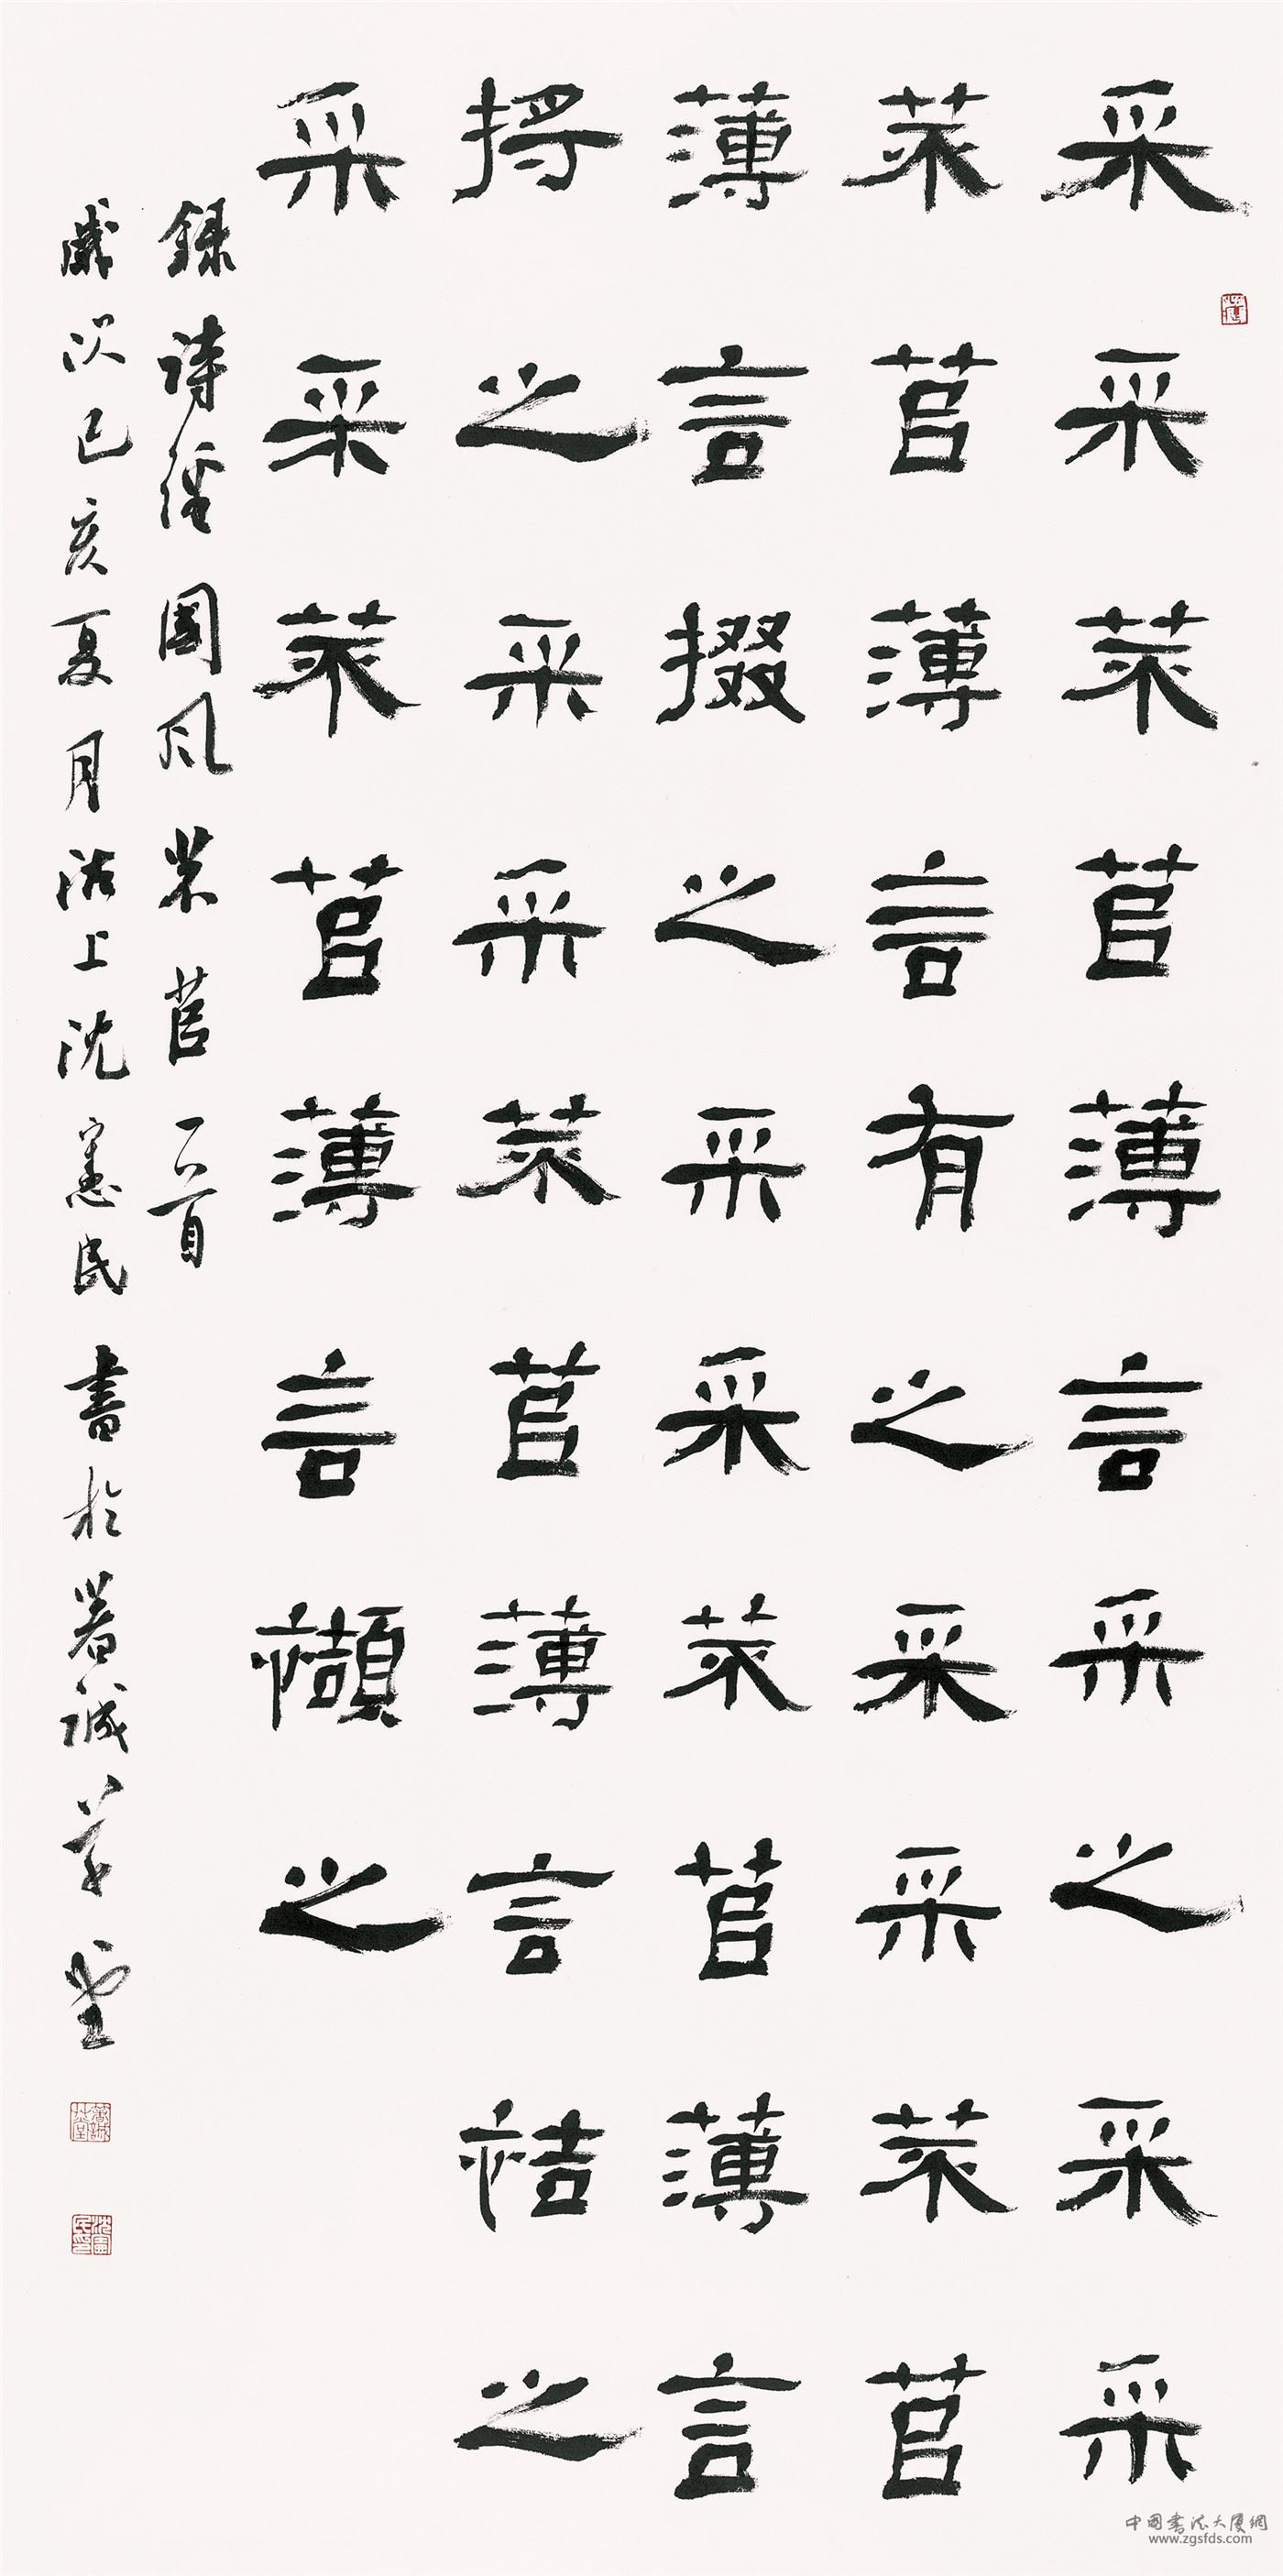 采采芣苢薄言采之采采
芣苢薄言有之采采芣苢
薄言掇之采采芣苢薄言
捋之采采芣苢薄言袺之
采采芣苢薄言襭之
錄詩經國風芣苢一首
歲次己亥夏月沽上沈憲民書於著誠草堂
沈憲民印
中國書法大厦網
www.zgsfds.com